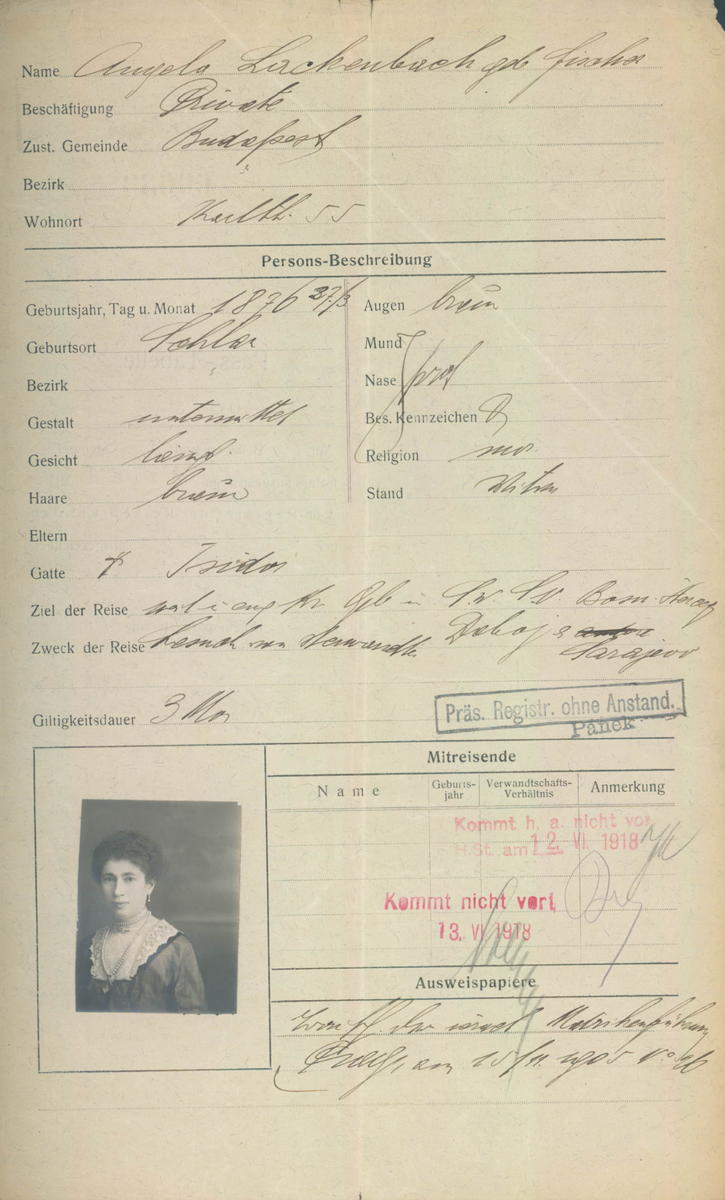 Name Angela Lackenbach geb Fischer
Beschäftigung Private
Zust. Gemeinde Budapest
Bezirk "
Wohnort 55
Persons-Beschreibung
Geburtsjahr, Tag u. Monat 1876 27/3 Augen braun
Geburtsort Mund
Bezirk Nase prop
Gestalt untermittel Bes. Kennzeichen
Gesicht längl. Religion mos.
Haare braun Stand Witwe
Eltern
Gatte † Isidor
Ziel der Reise Bosn. Herceg
Zweck der Reise Besuch von Verwandten Doboj Sarajevo
Giltigkeitsdauer 3 Mon
Präs. Registr. ohne Anstand.
Pánek
Mitreisende
Name Geburts-jahr Verwandtschafts-Verhältnis Anmerkung
Kommt h. a. nicht vor
H.St. am 12. VI. 1918
Kommt nicht vor!
13. VI 1918
Ausweispapiere
der israel Matrikenführung
Prag, am 15/11 1905